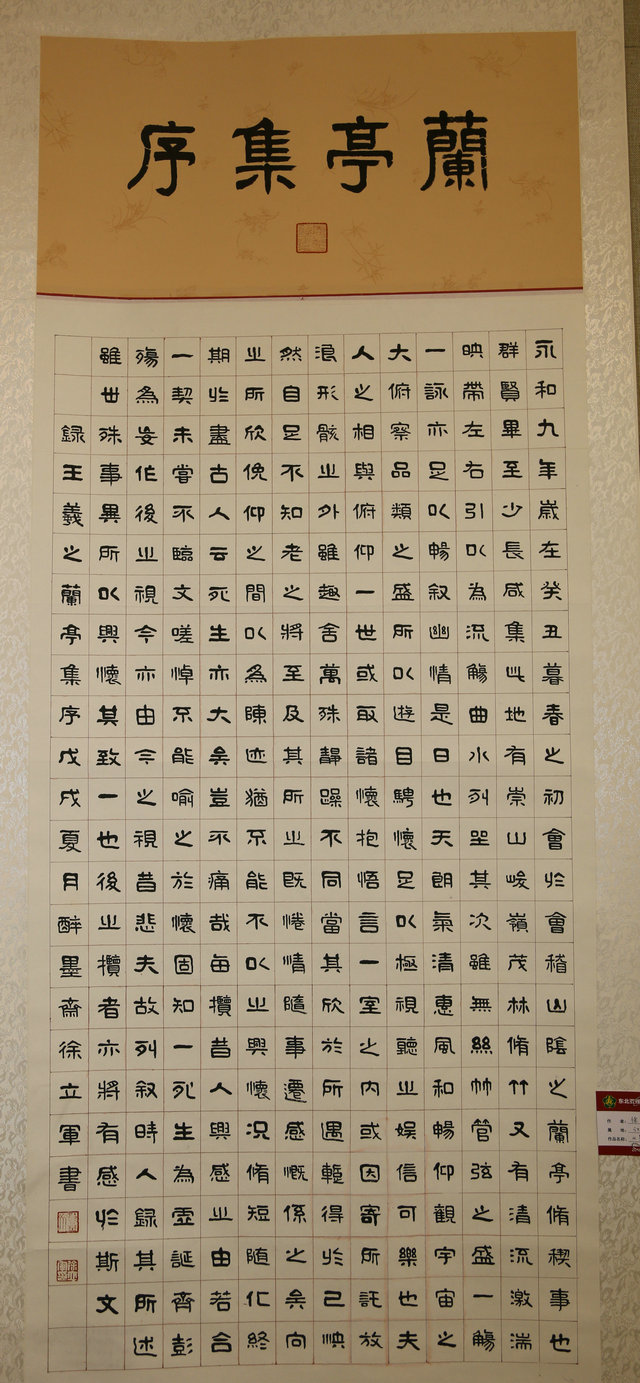 蘭亭集序
永和九年歲在癸丑暮春之初會於會稽山陰之蘭亭脩稧事也
群賢畢至少長咸集此地有崇山峻嶺茂林脩竹又有清流激湍
映帶左右引以為流觴曲水列坐其次雖無絲竹管弦之盛一觴
一詠亦足以暢叙幽情是日也天朗氣清惠風和暢仰觀宇宙之
大俯察品類之盛所以遊目騁懷足以極視聽之娛信可樂也夫
人之相與俯仰一世或取諸懷抱悟言一室之內或因寄所託放
浪形骸之外雖趣舍萬殊靜躁不同當其欣於所遇輒得於己怏
然自足不知老之將至及其所之既惓情隨事遷感慨係之矣向
之所欣俛仰之間以為陳迹猶不能不以之興懷況脩短隨化終
期於盡古人云死生亦大矣豈不痛哉每攬昔人興感之由若合
一契未嘗不臨文嗟悼不能喻之於懷固知一死生為虛誕齊彭
殤為妄作後之視今亦由今之視昔悲夫故列叙時人録其所述
雖世殊事異所以興懷其致一也後之攬者亦將有感於斯文
録王羲之蘭亭集序戊戌夏月醉墨齋徐立軍書
东北石
作品名称: